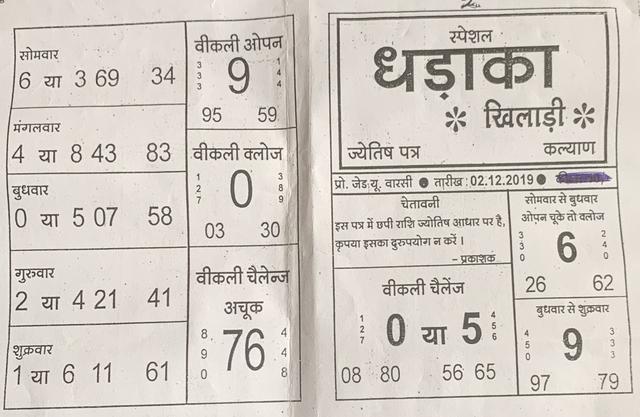 सोमवार
6 या 3 69 34
मंगलवार
4 या 8 43 83
बुधवार
0 या 5 07 58
गुरुवार
2 या 4 21 41
शुक्रवार
1 या 6 11 61
वीकली ओपन
3 3 3 9 1 4 4
95 59
वीकली क्लोज
1 2 7 0 3 8 9
03 30
वीकली चैलेन्ज
अचूक
8 9 0 76 4 4 8
स्पेशल
धड़ाका
खिलाड़ी
ज्येतिष पत्र कल्याण
प्रो. जेड.यू. वारसी ● तारीख : 02.12.2019 ●
चेतावनी
इस पत्र में छपी राशि ज्योतिष आधार पर है,
कृपया इसका दुरुपयोग न करें ।
- प्रकाशक
वीकली चैलेंज
1 2 7 0 या 5 4 5 6
08 80 56 65
सोमवार से बुधवार
ओपन चूके तो क्लोज
3 3 0 6 2 4 0
26 62
बुधवार से शुक्रवार
4 5 0 9 3 3 3
97 79